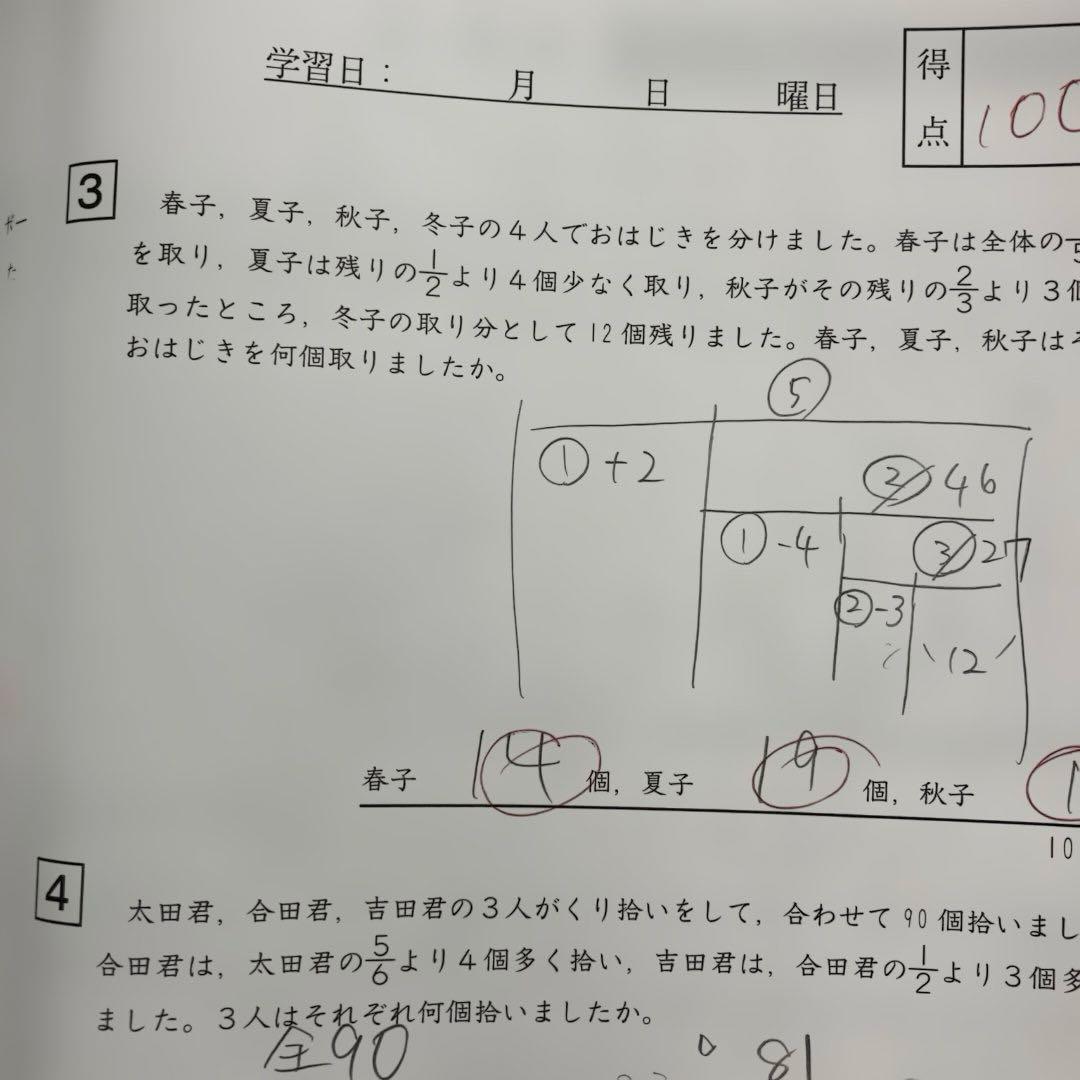 学習日： 月 日 曜日
得点 100
3
春子，夏子，秋子，冬子の4人でおはじきを分けました。春子は全体の
を取り，夏子は残りの1/2より4個少なく取り，秋子がその残りの2/3より3個
取ったところ，冬子の取り分として12個残りました。春子，夏子，秋子はそ
おはじきを何個取りましたか。
⑤
①+2
② 46
①-4
③ 27
②-3
12
春子 14 個，夏子 19 個，秋子 1
10
4
太田君，合田君，吉田君の3人がくり拾いをして，合わせて90個拾いまし
合田君は，太田君の5/6より4個多く拾い，吉田君は，合田君の1/2より3個多
ました。3人はそれぞれ何個拾いましたか。
全90
81